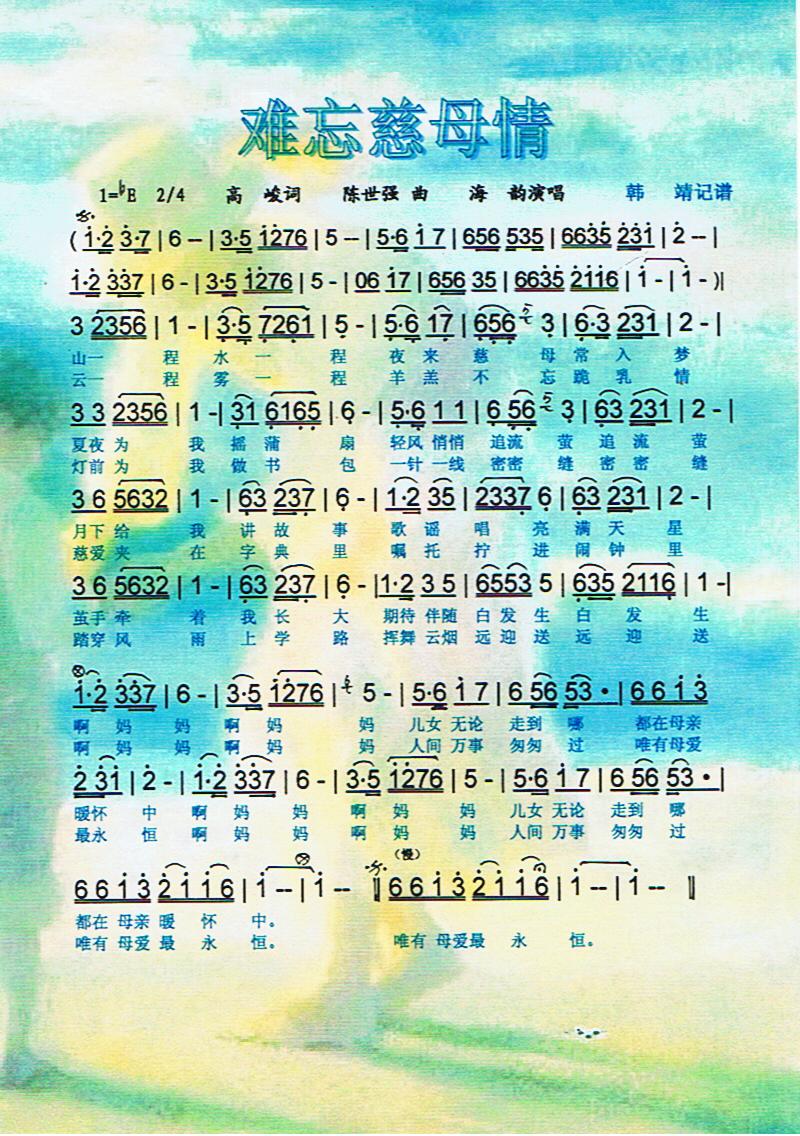 难忘慈母情
1=♭E 2/4 高 峻词 陈世强 曲 海 韵演唱 韩 靖记谱
( 1·2 3·7 | 6 -- | 3·5 1276 | 5 -- | 5·6 1 7 | 656 535 | 6635 231 | 2 -- |
1·2 337 | 6 - | 3·5 1276 | 5 - | 06 17 | 656 35 | 6635 2116 | 1 - | 1 - )|
3 2356 | 1 - | 3·5 7261 | 5 - | 5·6 17 | 656 3 | 6·3 231 | 2 - |
山一 程 水 一 程 夜 来 慈 母 常 入 梦
云一 程 雾 一 程 羊 羔 不 忘 跪 乳 情
3 3 2356 | 1 - | 31 6165 | 6 - | 5·6 1 1 | 6 56 3 | 63 231 | 2 - |
夏夜 为 我 摇 蒲 扇 轻风 悄悄 追流 萤 追 流 萤
灯前 为 我 做 书 包 一针 一线 密密 缝 密 密 缝
3 6 5632 | 1 - | 63 237 | 6 - | 1·2 35 | 2337 6 | 63 231 | 2 - |
月下 给 我 讲 故 事 歌 谣 唱 亮 满 天 星
慈爱 夹 在 字 典 里 嘱 托 拧 进 闹 钟 里
3 6 5632 | 1 - | 63 237 | 6 - | 1·2 3 5 | 6553 5 | 635 2116 | 1 - |
茧手 牵 着 我 长 大 期待 伴随 白 发 生 白 发 生
踏穿 风 雨 上 学 路 挥舞 云烟 远 迎 送 远 迎 送
1·2 337 | 6 - | 3·5 1276 | 5 - | 5·6 1 7 | 6 56 53 · | 6 6 1 3
啊 妈 妈 啊 妈 妈 儿女 无论 走到 哪 都在 母亲
啊 妈 妈 啊 妈 妈 人间 万事 匆匆 过 唯有 母爱
2 31 | 2 - | 1·2 337 | 6 - | 3·5 1276 | 5 - | 5·6 1 7 | 6 56 53 · |
暖怀 中 啊 妈 妈 啊 妈 妈 儿女 无论 走到 哪
最永 恒 啊 妈 妈 啊 妈 妈 人间 万事 匆匆 过
(慢)
6 6 1 3 2 1 1 6 | 1 -- | 1 -- ‖ 6 6 1 3 2 1 1 6 | 1 -- | 1 -- ‖
都在 母亲 暖 怀 中。
唯有 母爱 最 永 恒。 唯有 母爱最 永 恒。